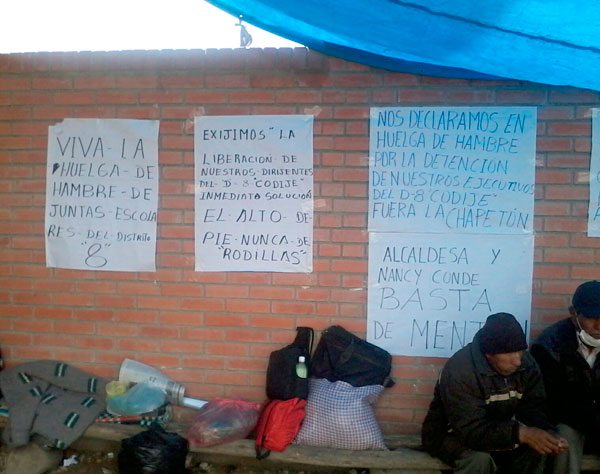 VIVA-LA
HUELGA-DE
HAMBRE-DE
JUNTAS-ESCOLA
RES-DEL-DISTRITO
"8"
EXIJIMOS "LA
LIBERACION-DE
NUESTROS-DIRIJENTES
DEL-D-8 "CODIJE"
INMEDIATA SOLUCION
EL-ALTO-DE
PIE-NUNCA-DE
"RODILLAS"
NOS DECLARAMOS EN
HUELGA DE HAMBRE
POR LA DETENCIÓN
DE NUESTROS EJECUTIVOS
DEL D-8 "CODIJE"
FUERA LA CHAPETÓN
ALCALDESA Y
NANCY CONDE
BASTA
DE